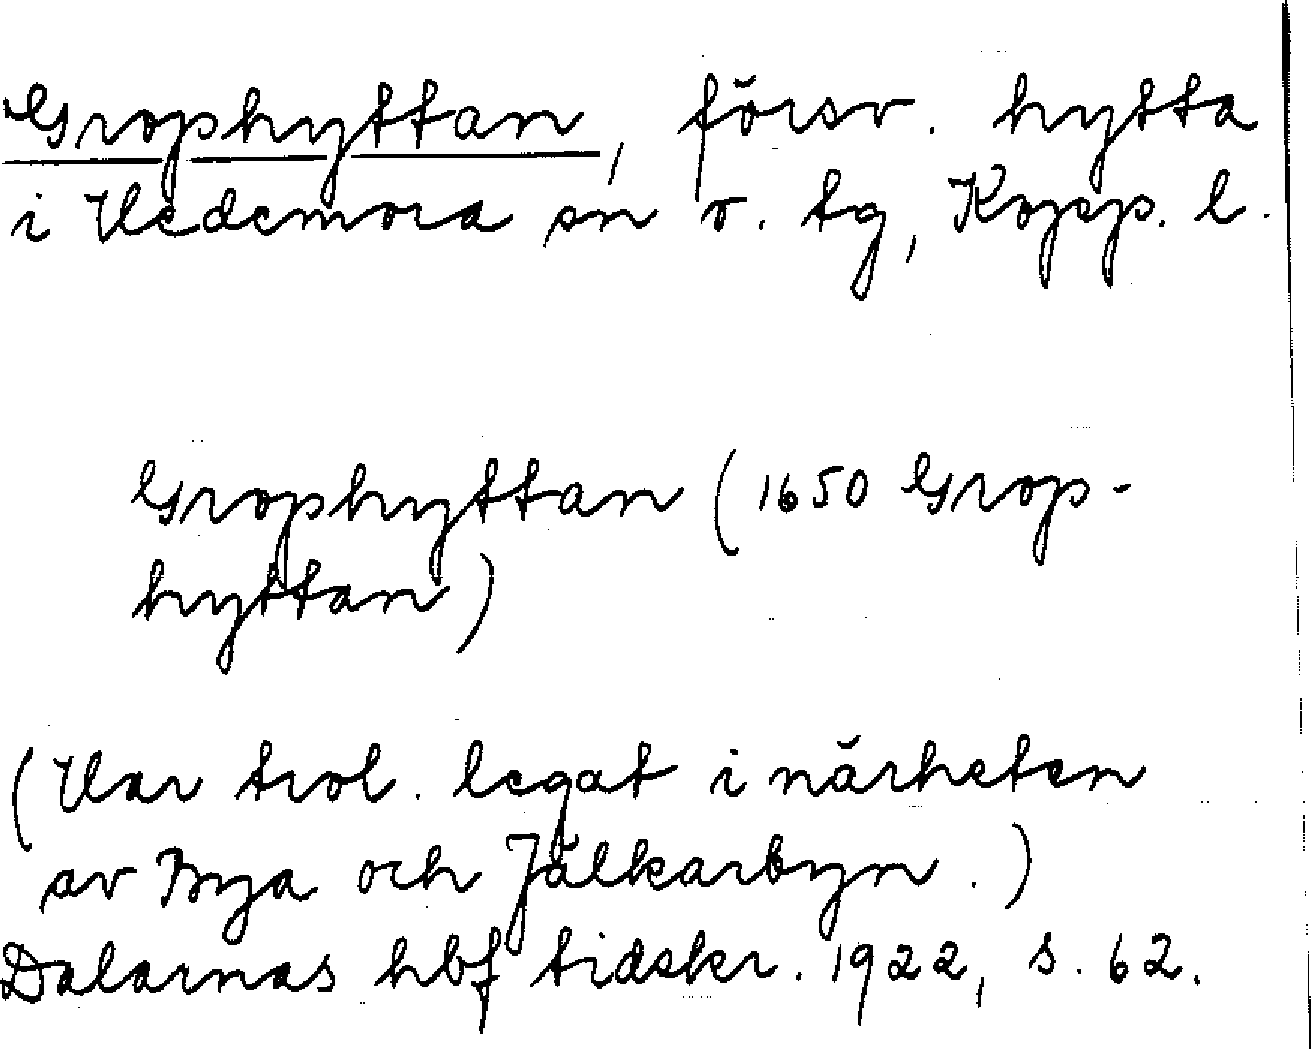 Grophyttan, försv. hytta
i Vedemora sn o. tg, Kopp. l.
Grophyttan (1650 Grop-
hyttan)
(Var trol. legat i närheten
av Bya och Jälkarbyn.)
Dalarnas hbf tidskr. 1922, s. 62.